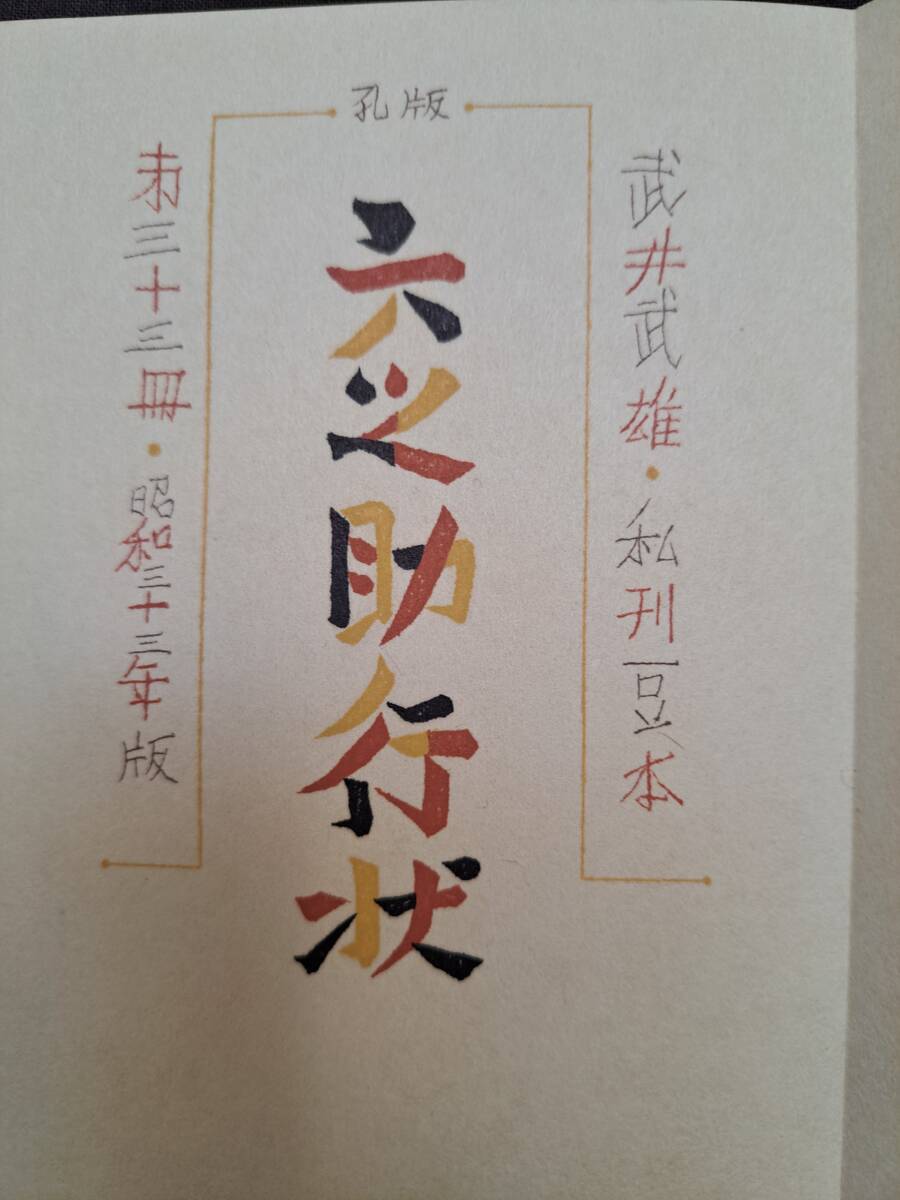 孔版
武井武雄・私刊豆本
六之助行状
㐧三十三冊・昭和三十三年版